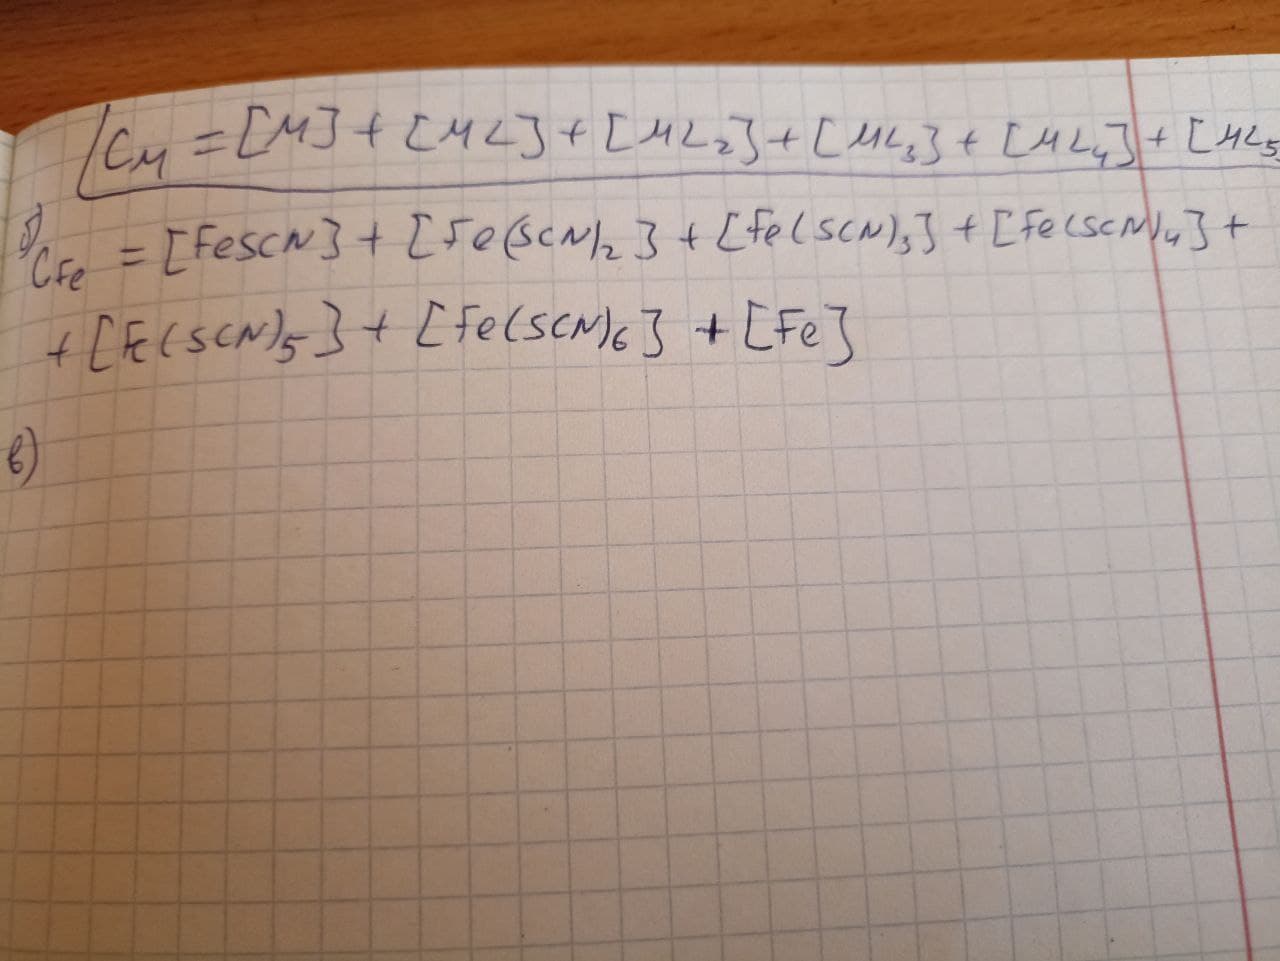 C_M = [M] + [ML] + [ML₂] + [ML₃] + [ML₄] + [ML₅
б) C_Fe = [FeSCN] + [Fe(SCN)₂] + [Fe(SCN)₃] + [Fe(SCN)₄] +
+ [Fe(SCN)₅] + [Fe(SCN)₆] + [Fe]
в)